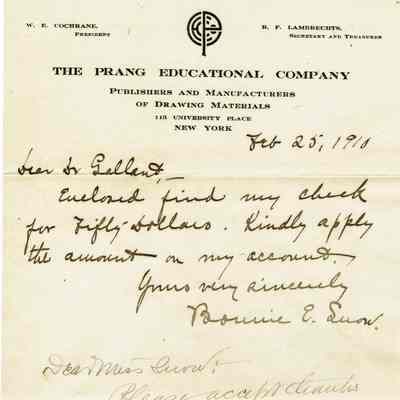 W. E. COCHRANE,
PRESIDENT
R. F. LAMBRECHTS,
SECRETARY AND TREASURER
THE PRANG EDUCATIONAL COMPANY
PUBLISHERS AND MANUFACTURERS
OF DRAWING MATERIALS
113 UNIVERSITY PLACE
NEW YORK
Feb 25, 1910
Dear Dr Gallant,
Enclosed find my check
for Fifty Dollars. Kindly apply
the amount on my account
Yours very sincerely
Bonnie E. Snow.
Dear Miss Snow:
Please accept thanks